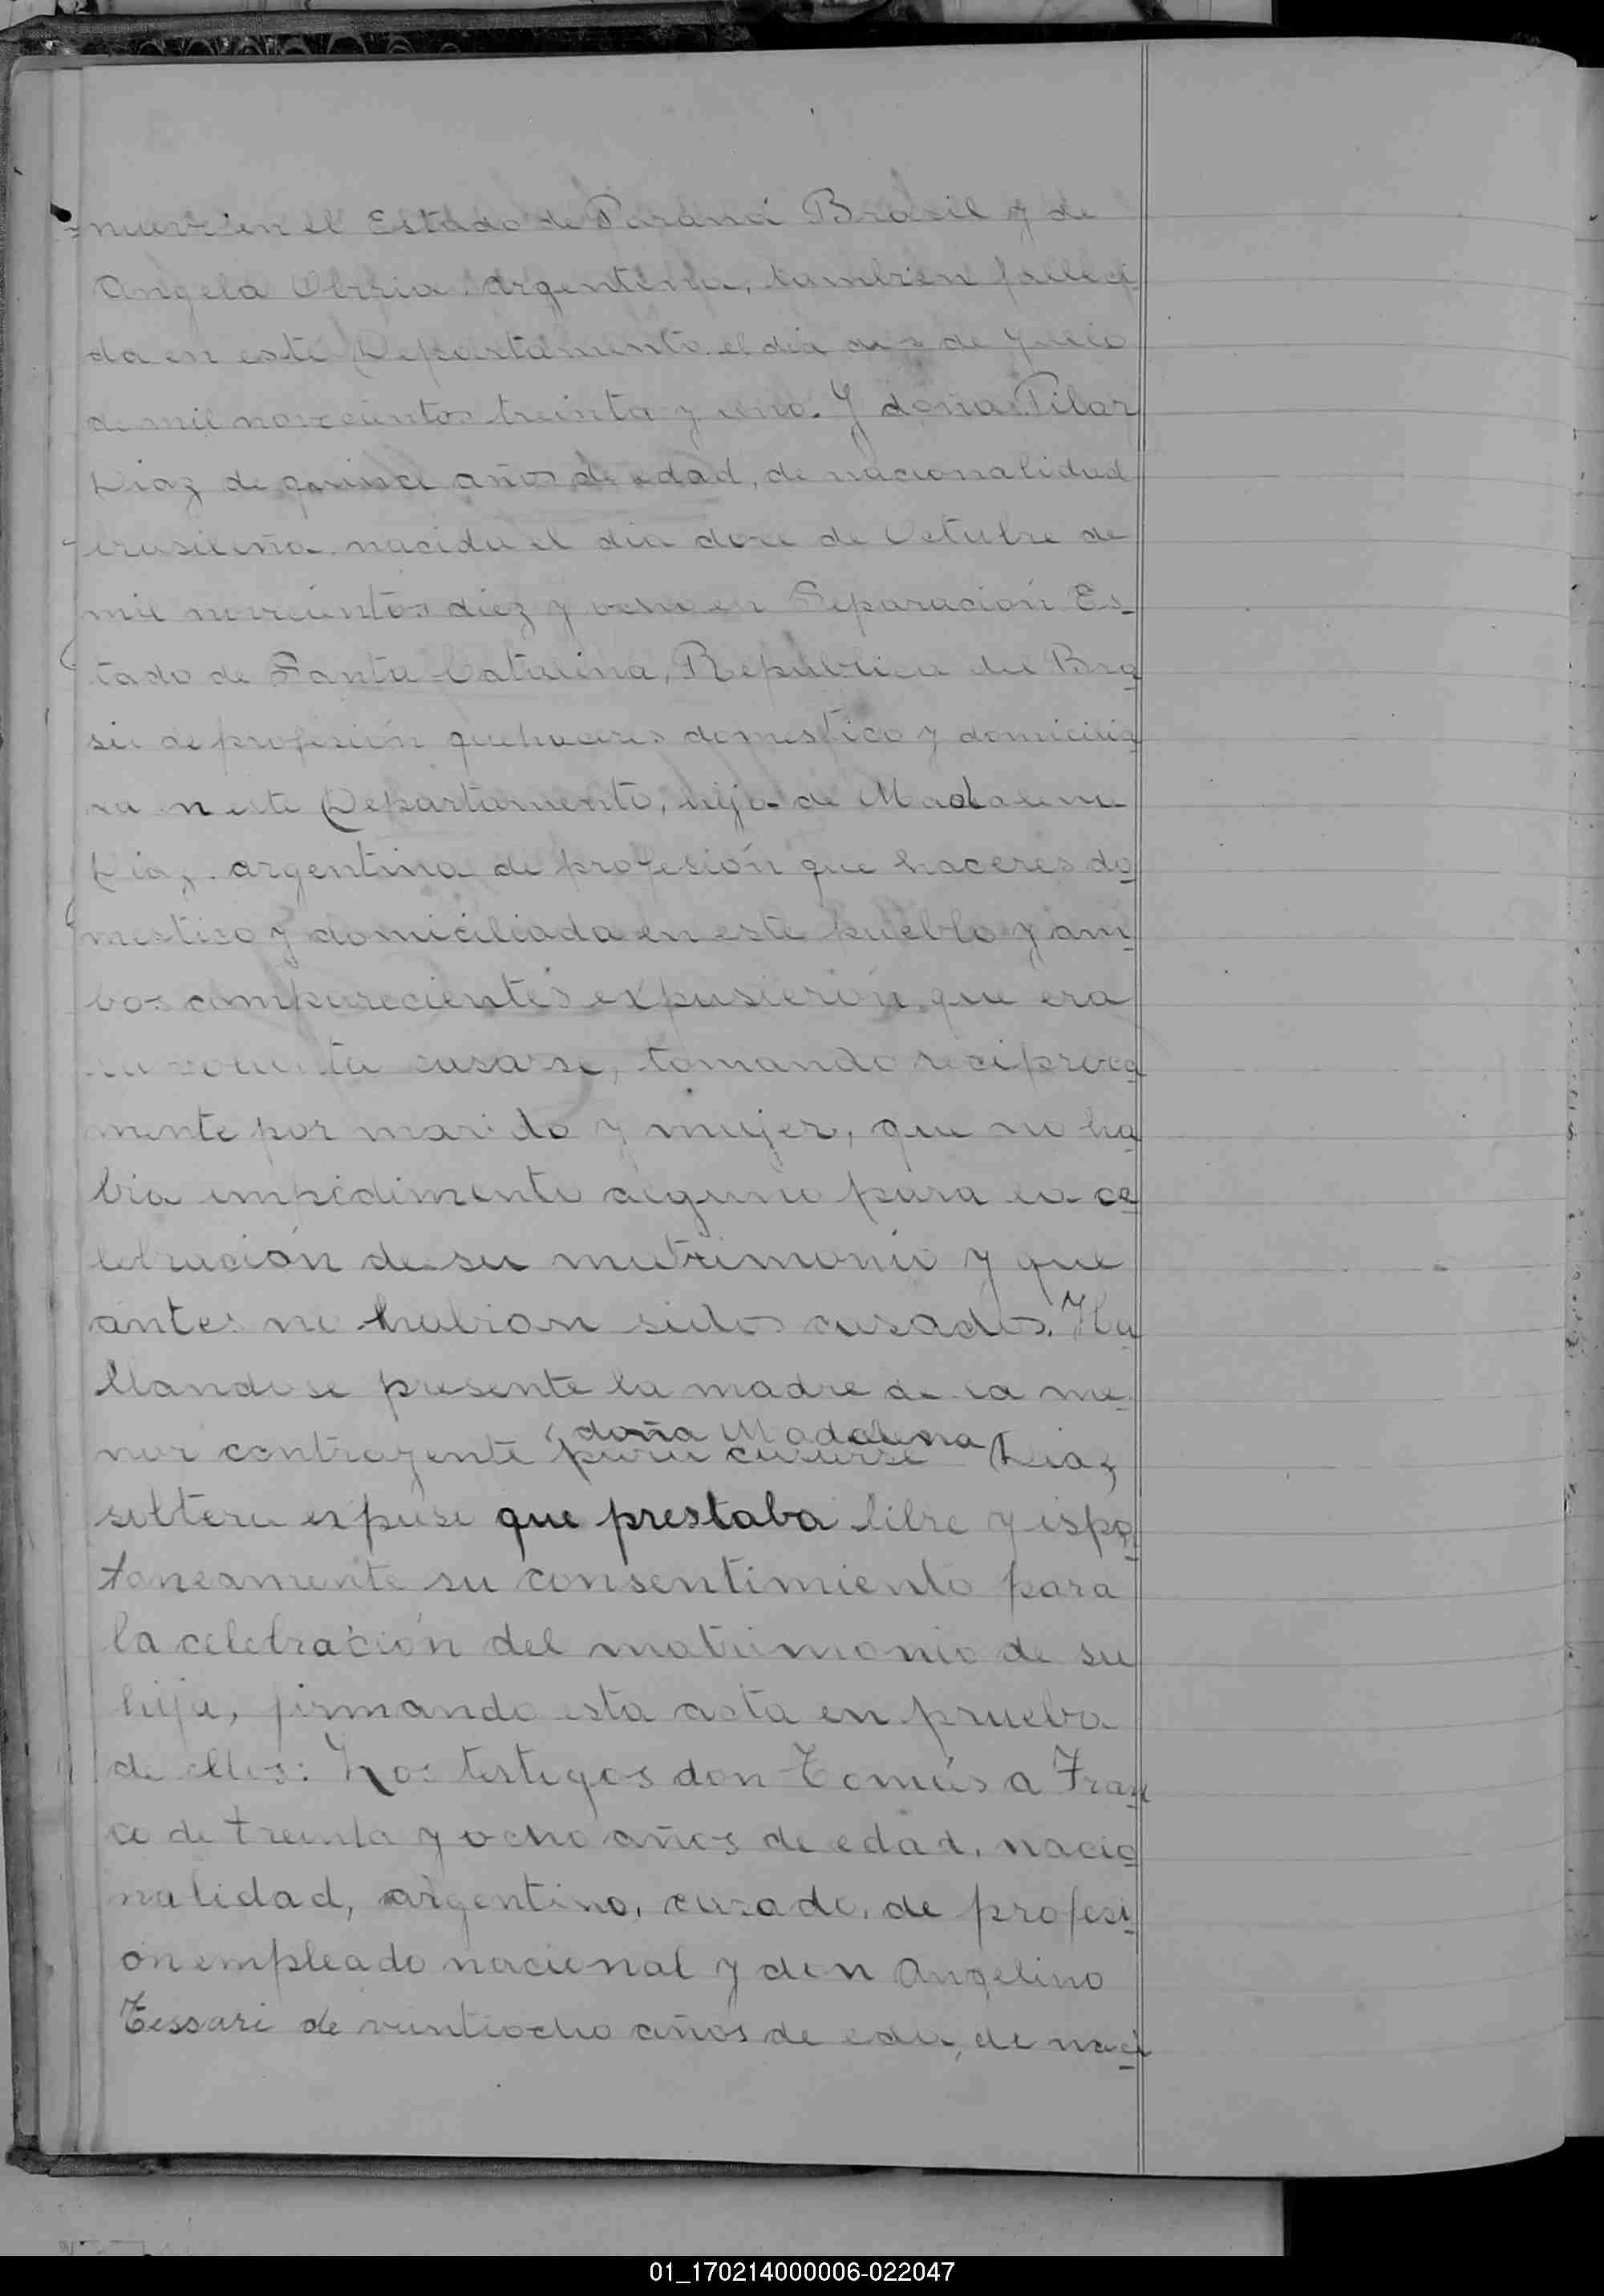 nueve en el Estado de Paraná Brasil y de
Angela Obrria argentina, tambien falleci
da en este Departamento el dia dos de Julio
de mil novecientos treinta y uno. Y doña Pilar
Diaz de quince años de edad, de nacionalidad
brasileña nacida el dia doce de Octubre de
mil novecientos diez y ocho en Separación Es-
tado de Santa Catalina, Republica del Bra
sil de profesión quehaceres domestico y domicilia
da en este Departamento, hija de Madalena
Diaz argentina de profesión que haceres do
mestico y domiciliada en este pueblo y am
bos comparecientes expusierón que era
su volunta casarse, tomando reciproca
mente por marido y mujer, que no ha
bia impedimento alguno para la ce
lebración de su matrimonio y que
antes no habian sidos casados. Ha
llandose presente la madre de la me
nor contrayente para casarse Diaz
doña Madalena
soltera expuso que prestaba libre y espon
taneamente su consentimiento para
la celebración del matrimonio de su
hija, firmando esta acta en prueba
de ellos: Los testigos don Tomás a Fran
co de treinta y ocho años de edad, nacio
nalidad, argentino, casado, de profesi
ón empleado nacional y don Angelino
Tessari de veintiocho años de eda, de naci
01_170214000006-022047